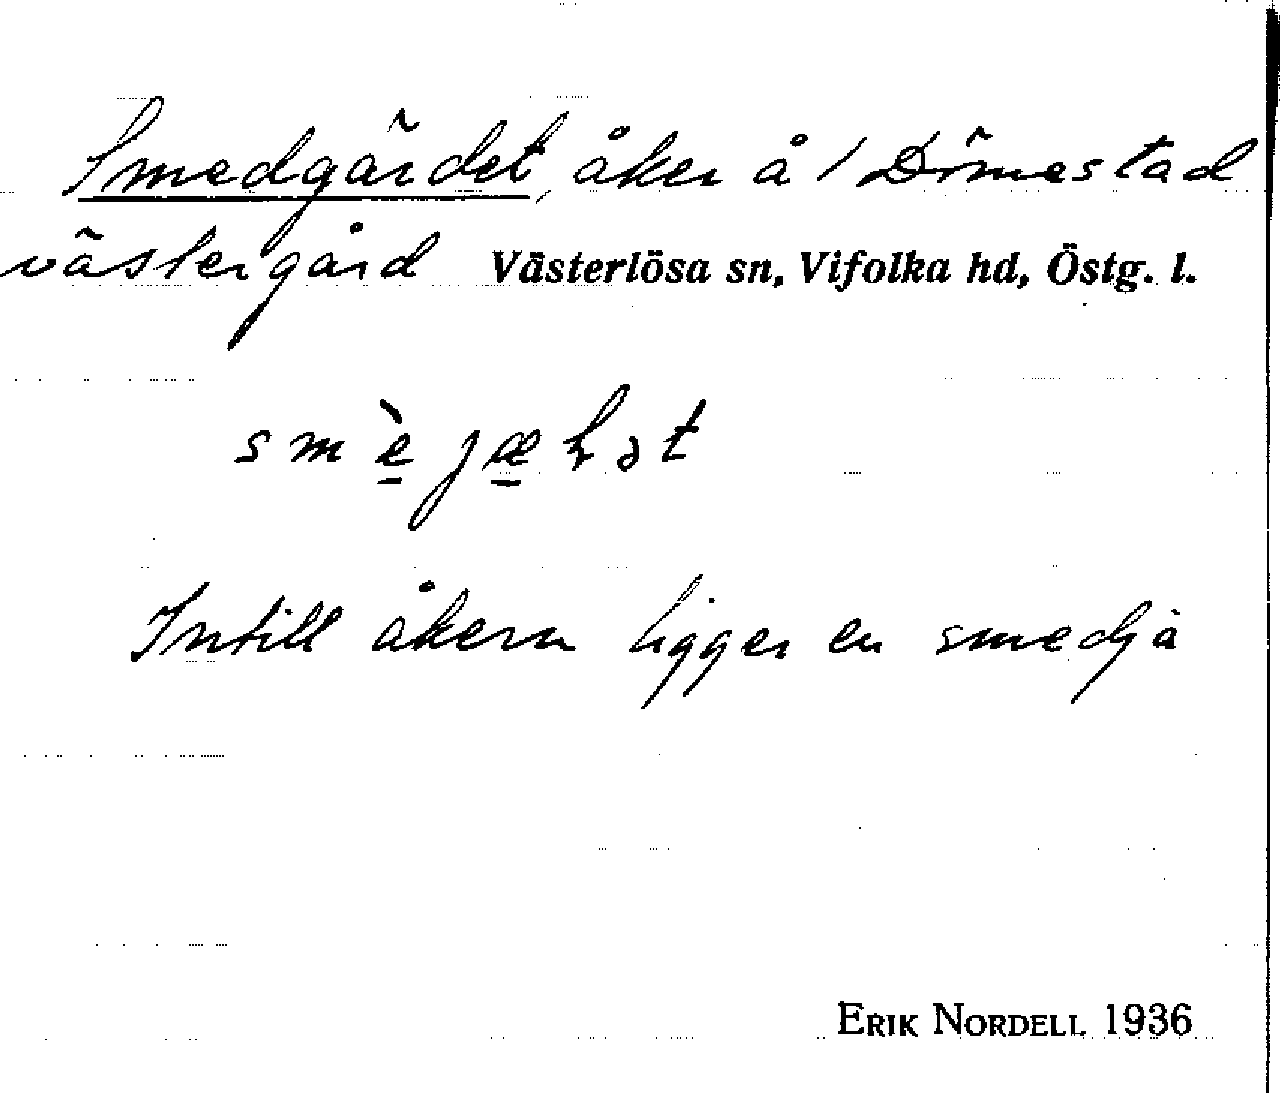 Smedgärdet, åker å / Dömestad
västergård Västerlösa sn, Vifolka hd, Östg. l.
Intill åkern ligger en smedja
ERIK NORDELL 1936